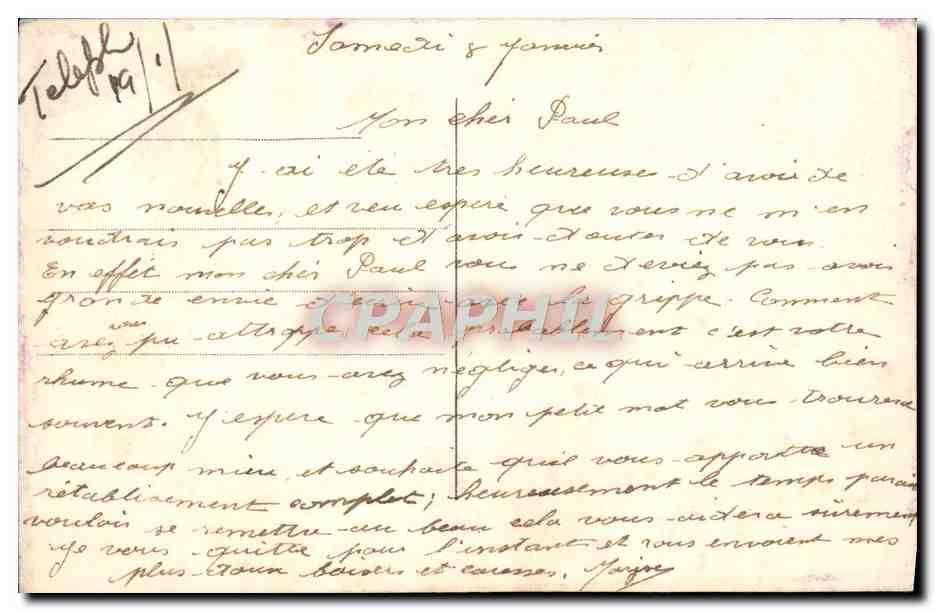 Teleph
19/1
Samedi 8 Janvier
Mon cher Paul
J ai été tres heureuse d'avoir de
vos nouvelles, et veu espere que vous ne m'en
voudrais pas trop d'avoir douter de vous.
En effet mon chér Paul vous ne deviez pas avoir
grande envie d'ecrire avec la grippe. Comment
avez vous pu attrappe cela probablement c'est votre
rhume que vous avez négliger, ce qui arrive bien
souvent. J espere que mon petit mot vous trouvera
beaucoup mieu, et souhaite qu'il vous apporte un
rétablisement complet; heureusement le temps parait
vouloir se remettre au beau cela vous aidera sûrement
Je vous quitte pour l'instant et vous envoient mes
plus doux baisers et caresses.
CPAPHIL